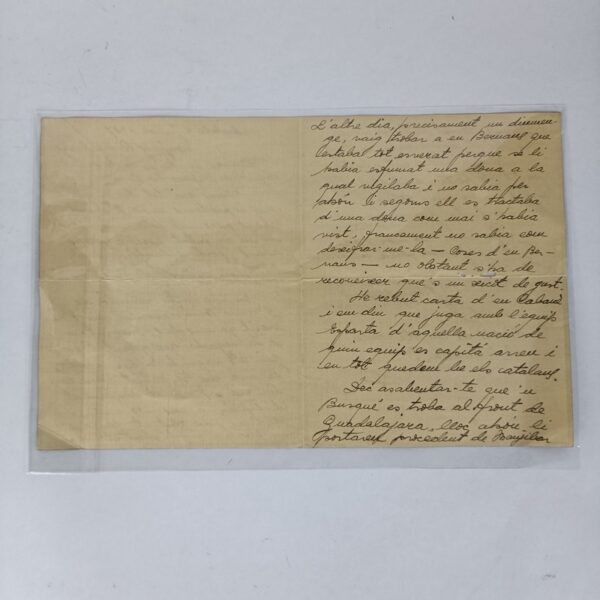 L'altre dia, precisament un diumen-
ge, vaig trobar a en Bernaus que
estaba tot enverat perque se li
habia esfumat una dona a la
qual vigilaba i no sabia per
ahón i segons ell es tractaba
d'una dona com mai s'habia
vist, francament no sabia com
descifrar-me-la — Coses d'en Ber-
naus — no obstant s'ha de
reconeixer qué's un xicot de gust.
He rebut carta d'en
i em diu que juga amb l'equip
Esparta d'aquella nació de
quin equip es capitá arreu i
en tot quedem be els catalans.
Dec asabentar-te que 'n
Busqué es troba al front de
Guadalajara, lloc ahón li
portaren procedent de